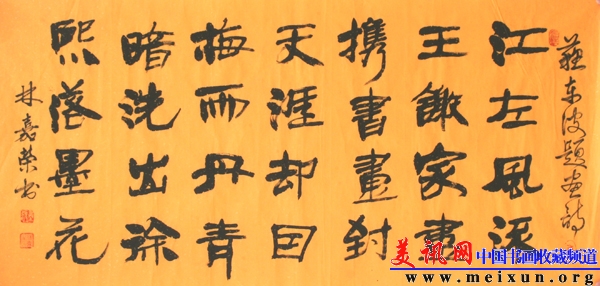 蘇东坡题画诗
江左風流
王謝家盡
携書畫到
天涯却因
梅雨丹青
暗洗出徐
熙落墨花
林嘉荣书
美讯网 中国书画收藏频道
www.meixun.org